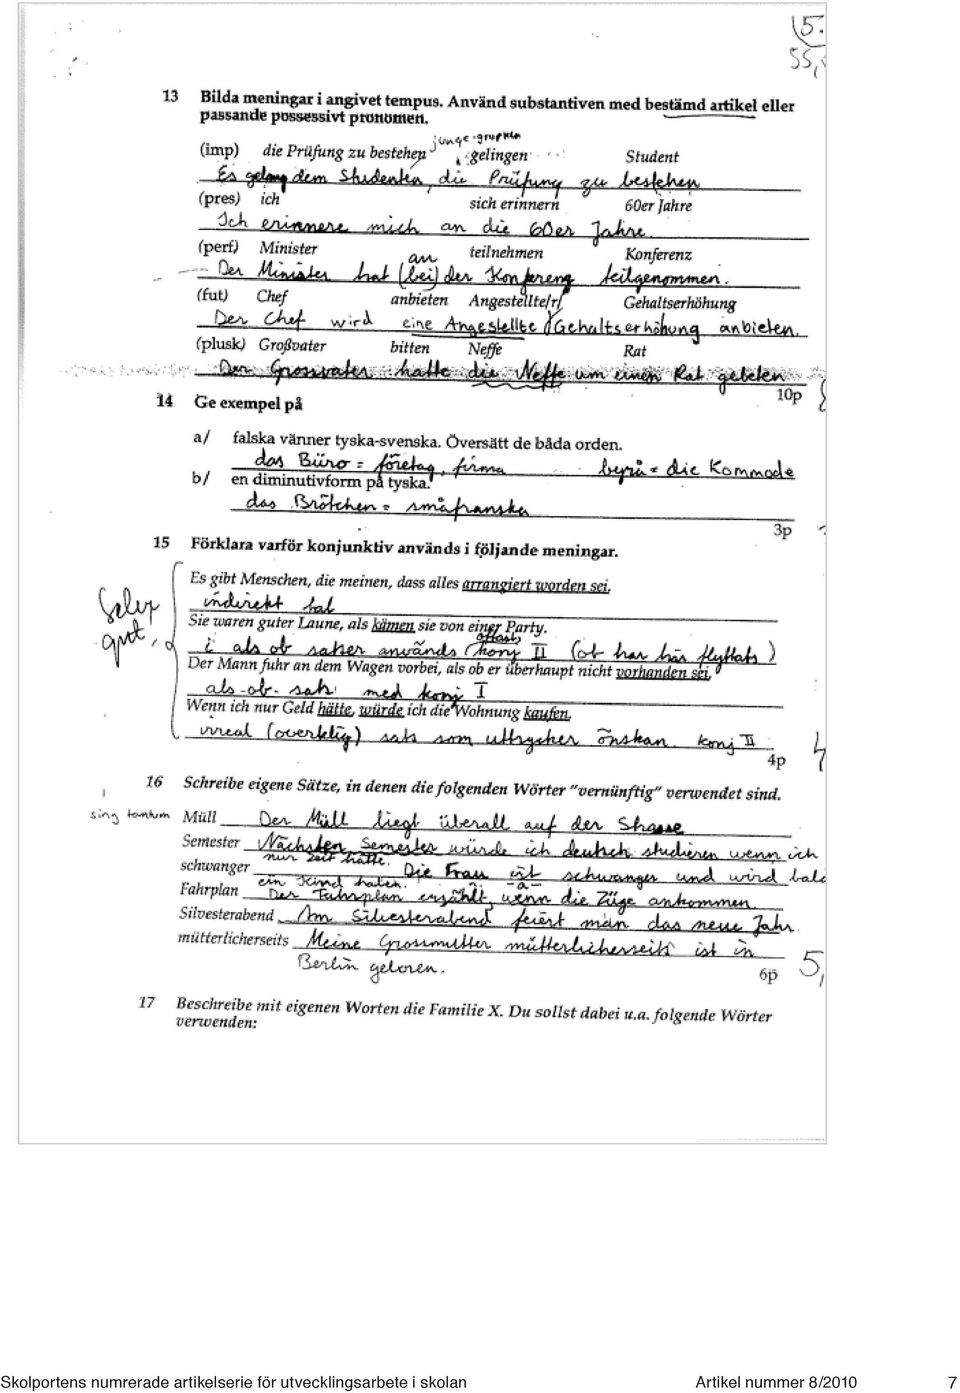 15.
55,
13 Bilda meningar i angivet tempus. Använd substantiven med bestämd artikel eller
passande possessivt pronomen.
junge-gruppen
(imp) die Prüfung zu bestehen gelingen Student
Es gelang dem Studenten, die Prüfung zu bestehen
(pres) ich sich erinnern 60er Jahre
Ich erinnere mich an die 60er Jahre.
(perf) Minister teilnehmen Konferenz
an
Der Minister hat (bei) der Konferenz teilgenommen.
(fut) Chef anbieten Angestellte/r/ Gehaltserhöhung
Der Chef wird eine Angestellte Gehaltserhöhung anbieten.
(plusk) Großvater bitten Neffe Rat
Der Grossvater hatte die Neffe um einen Rat gebeten
10p
14 Ge exempel på
a/ falska vänner tyska-svenska. Översätt de båda orden.
das Büro = företag, firma byrå = die Kommode
b/ en diminutivform på tyska.
das Brötchen = småfranska
3p
15 Förklara varför konjunktiv används i följande meningar.
Es gibt Menschen, die meinen, dass alles arrangiert worden sei.
indirekt tal
Sie waren guter Laune, als kämen sie von einer Party.
oftast
i als ob satser används konj II (ob har här flyttats)
Der Mann fuhr an dem Wagen vorbei, als ob er überhaupt nicht vorhanden sei.
als-ob- sats med konj I
Wenn ich nur Geld hätte, würde ich die Wohnung kaufen.
irreal (overklig) sats som uttrycker önskan. konj II
4p 4
16 Schreibe eigene Sätze, in denen die folgenden Wörter "vernünftig" verwendet sind.
sing tantum Müll Der Müll liegt überall auf der Strasse
Semester Nächsten Semester würde ich deutsch studieren wenn ich
nur zeit hätte.
schwanger Die Frau ist schwanger und wird bald
ein Kind haben.
Fahrplan Der Fahrplan erzählt, wenn die Züge ankommen.
Silvesterabend Am Silvesterabend feiert man das neue Jahr.
mütterlicherseits Meine Grossmutter mütterlicherseits ist in
Berlin geboren.
6p 5,
17 Beschreibe mit eigenen Worten die Familie X. Du sollst dabei u.a. folgende Wörter
verwenden:
Skolportens numrerade artikelserie för utvecklingsarbete i skolan Artikel nummer 8/2010 7